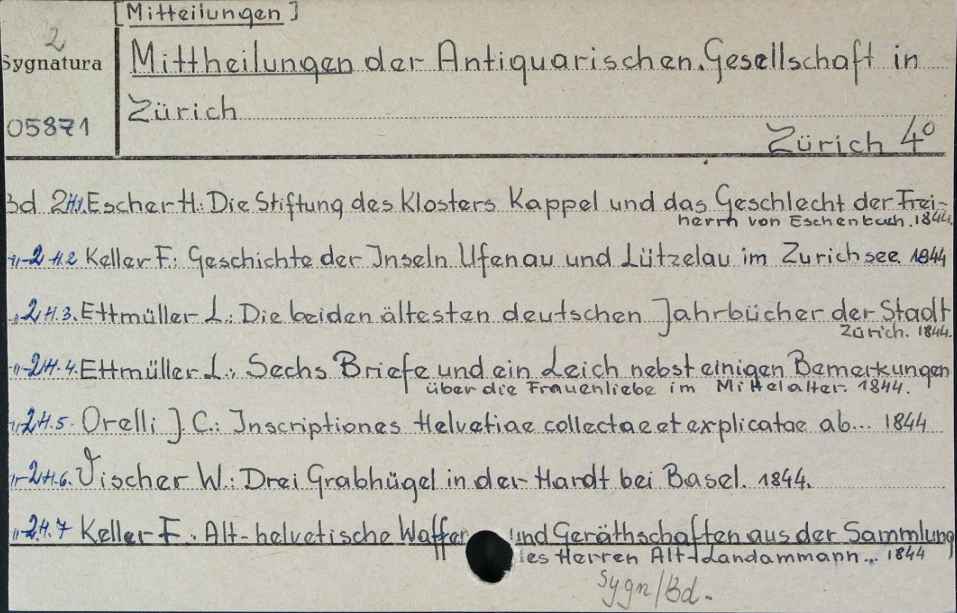 [Mitteilungen]
2
Sygnatura
05871
Mittheilungen der Antiquarischen Gesellschaft in
Zürich
Zürich 4°
Bd 2 H.1. Escher H.: Die Stiftung des Klosters Kappel und das Geschlecht der Frei-
herrn von Eschenbach. 1844.
-"- 2 H.2 Keller F.: Geschichte der Inseln Ufenau und Lützelau im Zurichsee. 1844
-"- 2 H.3. Ettmüller L.: Die beiden ältesten deutschen Jahrbücher der Stadt
Zürich. 1844.
-"- 2 H.4. Ettmüller L.: Sechs Briefe und ein Leich nebst einigen Bemerkungen
über die Frauenliebe im Mittelalter. 1844.
-"- 2 H.5. Orelli J.C.: Inscriptiones Helvetiae collectae et explicatae ab... 1844
-"- 2 H.6. Vischer W.: Drei Grabhügel in der Hardt bei Basel. 1844.
-"- 2 H.7 Keller F.: Alt-helvetische Waffen und Geräthschaften aus der Sammlung
des Herren Alt-Landammann... 1844
Sygn/Bd.